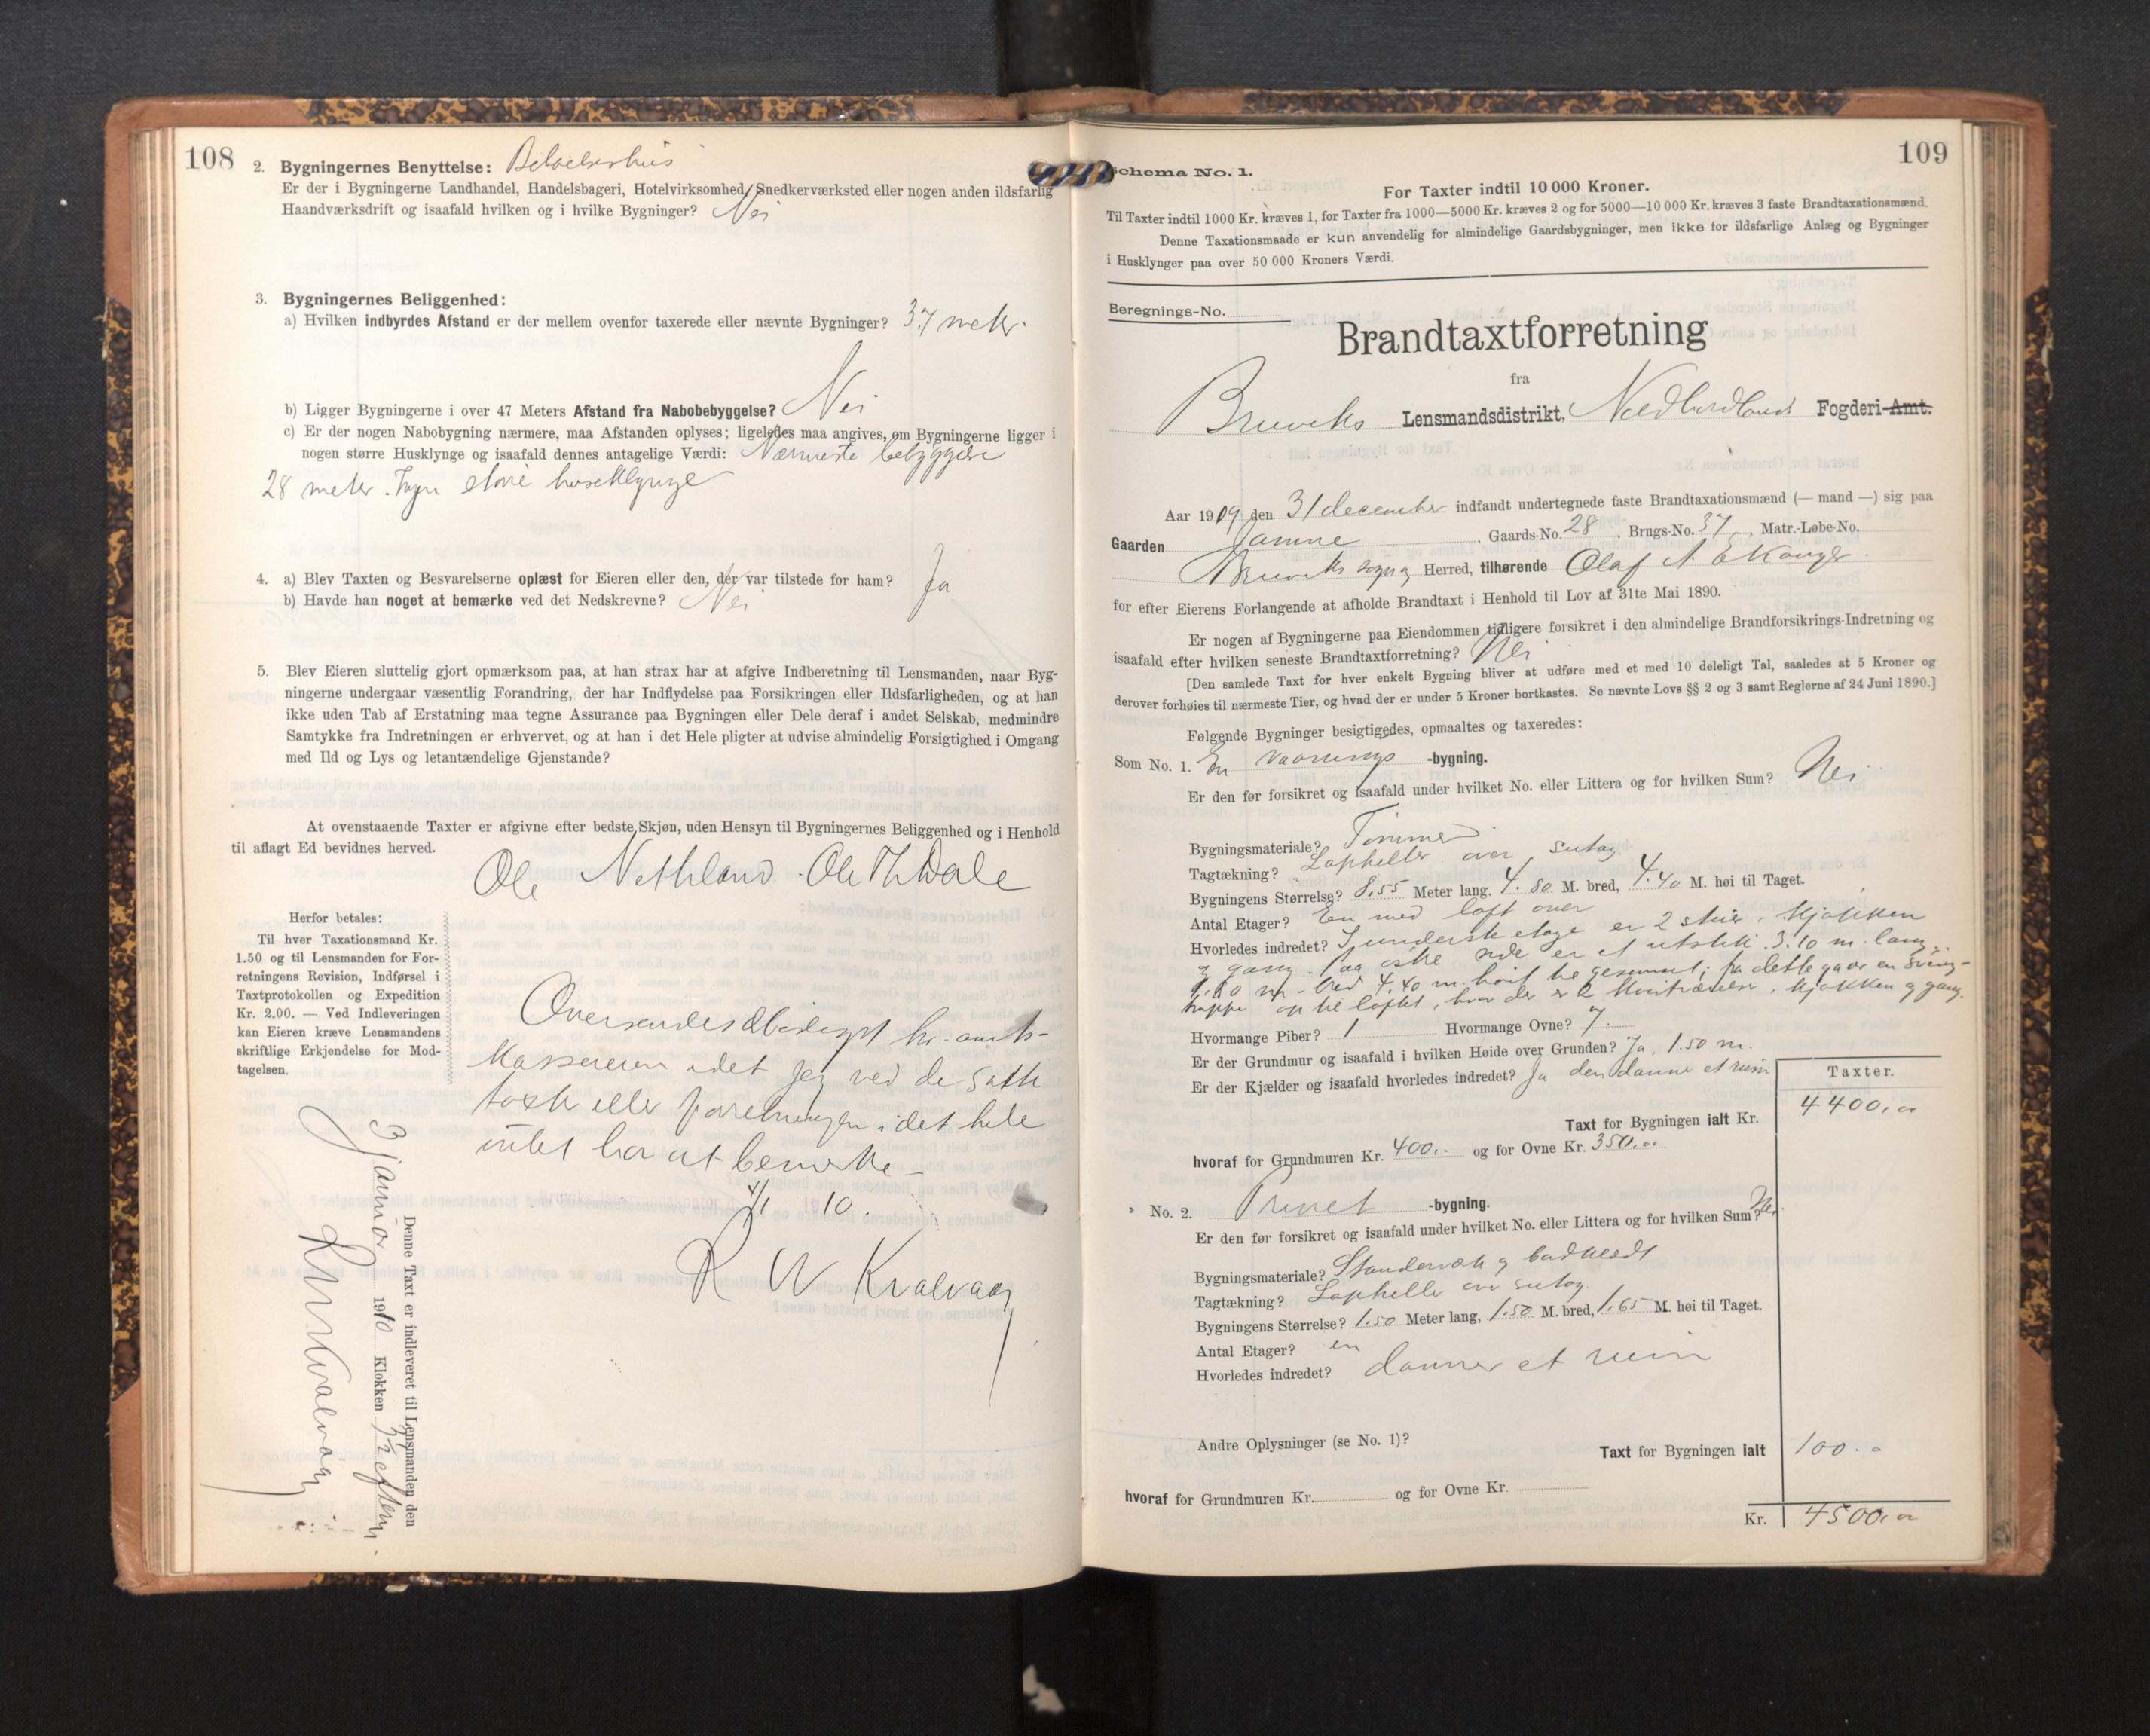 108
2. Bygningernes Benyttelse: Beboelseshus
Er der i Bygningerne Landhandel, Handelsbageri, Hotelvirksomhed, Snedkerværksted eller nogen anden ildsfarlig
Haandværksdrift og isaafald hvilken og i hvilke Bygninger? Nei
3. Bygningernes Beliggenhed:
a) Hvilken indbyrdes Afstand er der mellem ovenfor taxerede eller nævnte Bygninger? 37 meter.
b) Ligger Bygningerne i over 47 Meters Afstand fra Nabobebyggelse? Nei
c) Er der nogen Nabobygning nærmere, maa Afstanden oplyses; ligeledes maa angives, om Bygningerne ligger i
nogen større Husklynge og isaafald dennes antagelige Værdi: Nærmeste bebyggelse
28 meter. Ingen større huseklynge
4. a) Blev Taxten og Besvarelserne oplæst for Eieren eller den, der var tilstede for ham? Ja
b) Havde han noget at bemærke ved det Nedskrevne? Nei
5. Blev Eieren sluttelig gjort opmærksom paa, at han strax har at afgive Indberetning til Lensmanden, naar Byg-
ningerne undergaar væsentlig Forandring, der har Indflydelse paa Forsikringen eller Ildsfarligheden, og at han
ikke uden Tab af Erstatning maa tegne Assurance paa Bygningen eller Dele deraf i andet Selskab, medmindre
Samtykke fra Indretningen er erhvervet, og at han i det Hele pligter at udvise almindelig Forsigtighed i Omgang
med Ild og Lys og letantændelige Gjenstande?
At ovenstaaende Taxter er afgivne efter bedste Skjøn, uden Hensyn til Bygningernes Beliggenhed og i Henhold
til aflagt Ed bevidnes herved.
Ole Nethland. Ole Th Dale
Herfor betales:
Til hver Taxationsmand Kr.
1.50 og til Lensmanden for For-
retningens Revision, Indførsel i
Taxtprotokollen og Expedition
Kr. 2.00. — Ved Indleveringen
kan Eieren kræve Lensmandens
skriftlige Erkjendelse for Mod-
tagelsen.
Oversendes ærbødigst hr. amts-
kassereren idet jeg ved de satte
takster eller forretningen i det hele
intet har at bemerke –
4/1 10.
R W Kvalvaag
Denne Taxt er indleveret til Lensmanden den
3 januar 1910 Klokken 3½ efterm.
R W Kvalvaag
109
Schema No. 1.
For Taxter indtil 10 000 Kroner.
Til Taxter indtil 1000 Kr. kræves 1, for Taxter fra 1000—5000 Kr. kræves 2 og for 5000—10 000 Kr. kræves 3 faste Brandtaxationsmænd.
Denne Taxationsmaade er kun anvendelig for almindelige Gaardsbygninger, men ikke for ildsfarlige Anlæg og Bygninger
i Husklynger paa over 50 000 Kroners Værdi.
Beregnings-No.
Brandtaxtforretning
fra
Bruviks Lensmandsdistrikt, Nordhordlands Fogderi-Amt.
Aar 1909 den 31 december indfandt undertegnede faste Brandtaxationsmænd (— mand —) sig paa
Gaarden Jamne. Gaards-No. 28, Brugs-No. 37, Matr.-Løbe-No.
Bruviks sogn og Herred, tilhørende Olaf A Ekanger.
for efter Eierens Forlangende at afholde Brandtaxt i Henhold til Lov af 31te Mai 1890.
Er nogen af Bygningerne paa Eiendommen tidligere forsikret i den almindelige Brandforsikrings-Indretning og
isaafald efter hvilken seneste Brandtaxtforretning? Nei
[Den samlede Taxt for hver enkelt Bygning bliver at udføre med et med 10 deleligt Tal, saaledes at 5 Kroner og
derover forhøies til nærmeste Tier, og hvad der er under 5 Kroner bortkastes. Se nævnte Lovs §§ 2 og 3 samt Reglerne af 24 Juni 1890.]
Følgende Bygninger besigtigedes, opmaaltes og taxeredes:
Som No. 1. En vaanings -bygning.
Er den før forsikret og isaafald under hvilket No. eller Littera og for hvilken Sum? Nei
Bygningsmateriale? Tømmer
Tagtækning? Laphelle over sutag
Bygningens Størrelse? 8.55 Meter lang, 4.80 M. bred, 4.40 M. høi til Taget.
Antal Etager? En med loft over
Hvorledes indrettet? I underste etage er 2 stuer, kjøkken
og gang. Paa østre side er et utstikk 3.10 m. lang,
1.60 m. bred 4.40 m. høit til gesemset; fra dette gaar en sving-
trappe op til loftet, hvor der er 2 kvistværelser, kjøkken og gang.
Hvormange Piber? 1 Hvormange Ovne? 7.
Er der Grundmur og isaafald i hvilken Høide over Grunden? Ja, 1.50 m.
Er der Kjælder og isaafald hvorledes indredet? Ja den danner et rum
Taxter.
Taxt for Bygningen ialt Kr. 4400,00
hvoraf for Grundmuren Kr. 400.- og for Ovne Kr. 350.00
" No. 2. Privet -bygning.
Er den før forsikret og isaafald under hvilket No. eller Littera og for hvilken Sum? Nei
Bygningsmateriale? Standerværk og bordklædt
Tagtækning? Laphelle over sutag.
Bygningens Størrelse? 1.50 Meter lang, 1.50 M. bred, 1.65 M. høi til Taget.
Antal Etager? en
Hvorledes indredet? danner et rum
Andre Oplysninger (se No. 1)?
Taxt for Bygningen ialt 100.-
hvoraf for Grundmuren Kr. og for Ovne Kr.
Kr. 4500,00